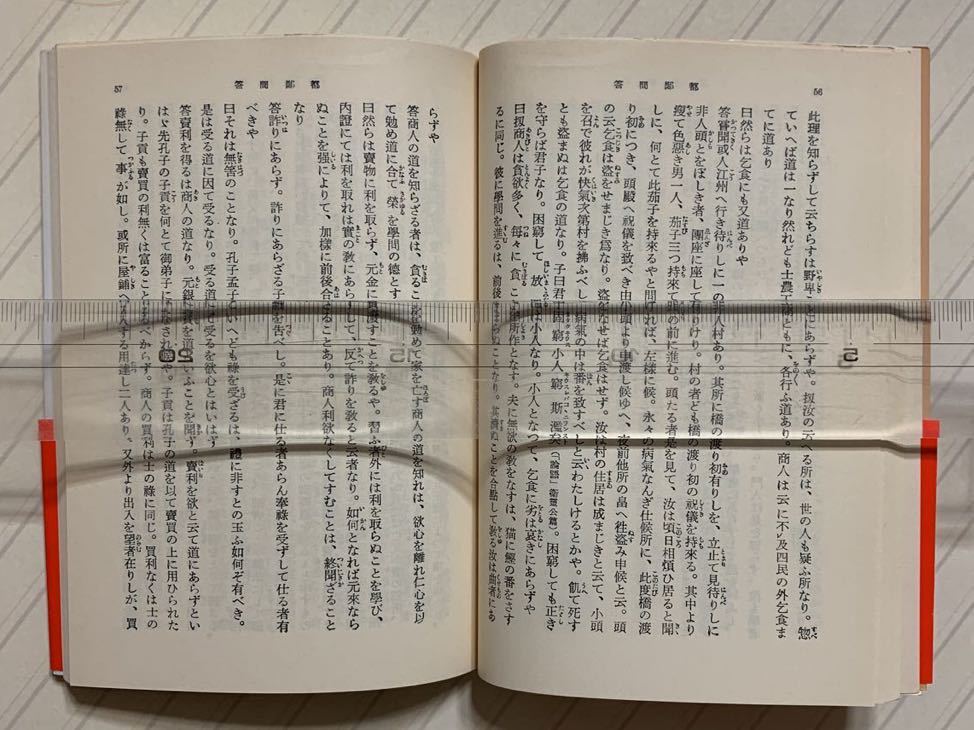 都鄙問答
56
此理を知らずして云ちらすは野卑ことにあらずや。扨汝の云へる所は、世の人も疑ふ所なり。惣
ていへば道は一なり然れども士農工商ともに、各行ふ道あり。商人は云に不及四民の外乞食ま
てに道あり
曰然らは乞食にも又道ありや
答嘗聞或人江州へ行き待りしに一の非人村あり。其所に橋の渡り初有りしを、立止て見待りしに
非人頭とをぼしき者、圓座に座して居りけり。村の者ども橋の渡り初の祝儀を持來る。其中より
瘦て色惡き男一人、茄子三つ持來て頭の前に進む。頭たる者是を見て、汝は頃日相煩ひ居ると聞
しに、何とて此茄子を持來るやと問ければ、左樣に候。永々の病氣なんぎ仕候所に、此度橋の渡
り初につき、頭殿へ祝儀を致べき由 頭より申渡し候ゆへ、夜前他所の畠へ徃盗み申候と云。頭
の云乞食は盗をせまじき爲なり。盗をなせば乞食はせず。汝は村の住居は成まじきと云て、小頭
を召で彼れが快氣次第村を拂ふべし病氣の中は番を致すべしと云わたしけるとかや。飢て死す
とも盗まぬは乞食の道なり。子曰君 固窮小人 窮 斯濫矣(「論語」衛靈公篇)。困窮しても正き
を守らば君子なり。困窮して 放 は小人なり。小人となつて、乞食に劣は哀きにあらずや
曰扨商人は貪欲多く、每々に 貪 こ 所作となす。夫に無欲の敎をなすは、猫に鰹の番をさす
るに同じ。彼に學問を進るは、前後 ぬことなり。其濟ぬことを合點して敎る汝は曲者にあ
都鄙問答
57
らずや
答商人の道を知らざる者は、貪ることを勤めて家を亡す商人の道を知れは、欲心を離れ仁心を以
て勉め道に合て 榮 を學問の德とす
曰然らは賣物に利を取らず、元金に 渡すことを敎るや。習ふ者外には利を取らぬことを學び、
內證にては利を取れは實の敎にあらずして、反て詐りを敎ると云者なり。如何となれば元來なら
ぬことを强によりて、加樣に前後合 ることあり。商人利欲なくしてすむことは、終聞ざること
なり
答詐りにあらず。詐りにあらざる子 を告べし。是に君に仕る者あらん奉祿を受ずして仕る者有
べきや
曰それは無筈のことなり。孔子孟子 いへども祿を受ざるは、禮に非すとの玉ふ如何ぞ有べき。
是は受る道に因て受るなり。受る道 受るを欲心とはいはず
答賣利を得るは商人の道なり。元銀 賣を道 いふことを聞ず。賣利を欲と云て道にあらずとい
はゞ先孔子の子貢を何とて御弟子に なされ や。子貢は孔子の道を以て賣買の上に用ひられた
り。子貢も賣買の利無くは富ること べからず。商人の買利は士の祿に同じ。買利なくは士の
祿無して 事 が如し。或所に屋鋪へ 入する用達し二人あり。又外より出入を望者在りしが、買